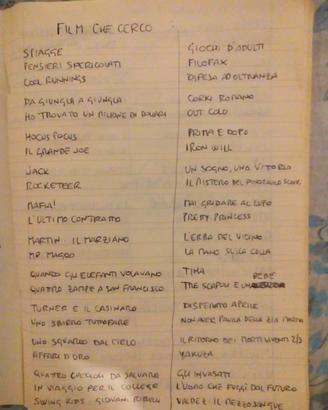 FILM CHE CERCO
SPIAGGE
PENSIERI SPERICOLATI
COOL RUNNINGS
DA GIUNGLA A GIUNGLA
HO TROVATO UN MILIONE DI DOLLARI
HOCUS POCUS
IL GRANDE JOE
JACK
ROCKETEER
MAFIA!
L'ULTIMO CONTRATTO
MARTIN IL MARZIANO
MR. MAGOO
QUANDO GLI ELEFANTI VOLAVANO
QUATTRO ZAMPE A SAN FRANCISCO
TURNER E IL CASINARO
UNO SBIRRO TUTTOFARE
UNO SGUARDO DAL CIELO
AFFARI D'ORO
QUATTRO CUCCIOLI DA SALVARE
IN VIAGGIO PER IL COLLEGE
SWING KIDS: GIOVANI RIBELLI
GIOCHI D'ADULTI
FILOFAX
DIFESA AD OLTRANZA
CORKY ROMANO
OUT COLD
PRIMA E DOPO
IRON WILL
UN SOGNO, UNA VITTORIA
IL MISTERO DEL
MAI GRIDARE AL LUPO
PRETTY PRINCESS
L'ERBA DEL VICINO
LA MANO SULLA CULLA
TINA
TRE SCAPOLI E UN BEBE
DISPERATO APRILE
NON AVER PAURA DELLA ZIA MARTA
IL RITORNO DEI MORTI VIVENTI 2/3
YAKUZA
GLI INVASATI
L'UOMO CHE FUGGÌ DAL FUTURO
VALDEZ IL MEZZOSANGUE